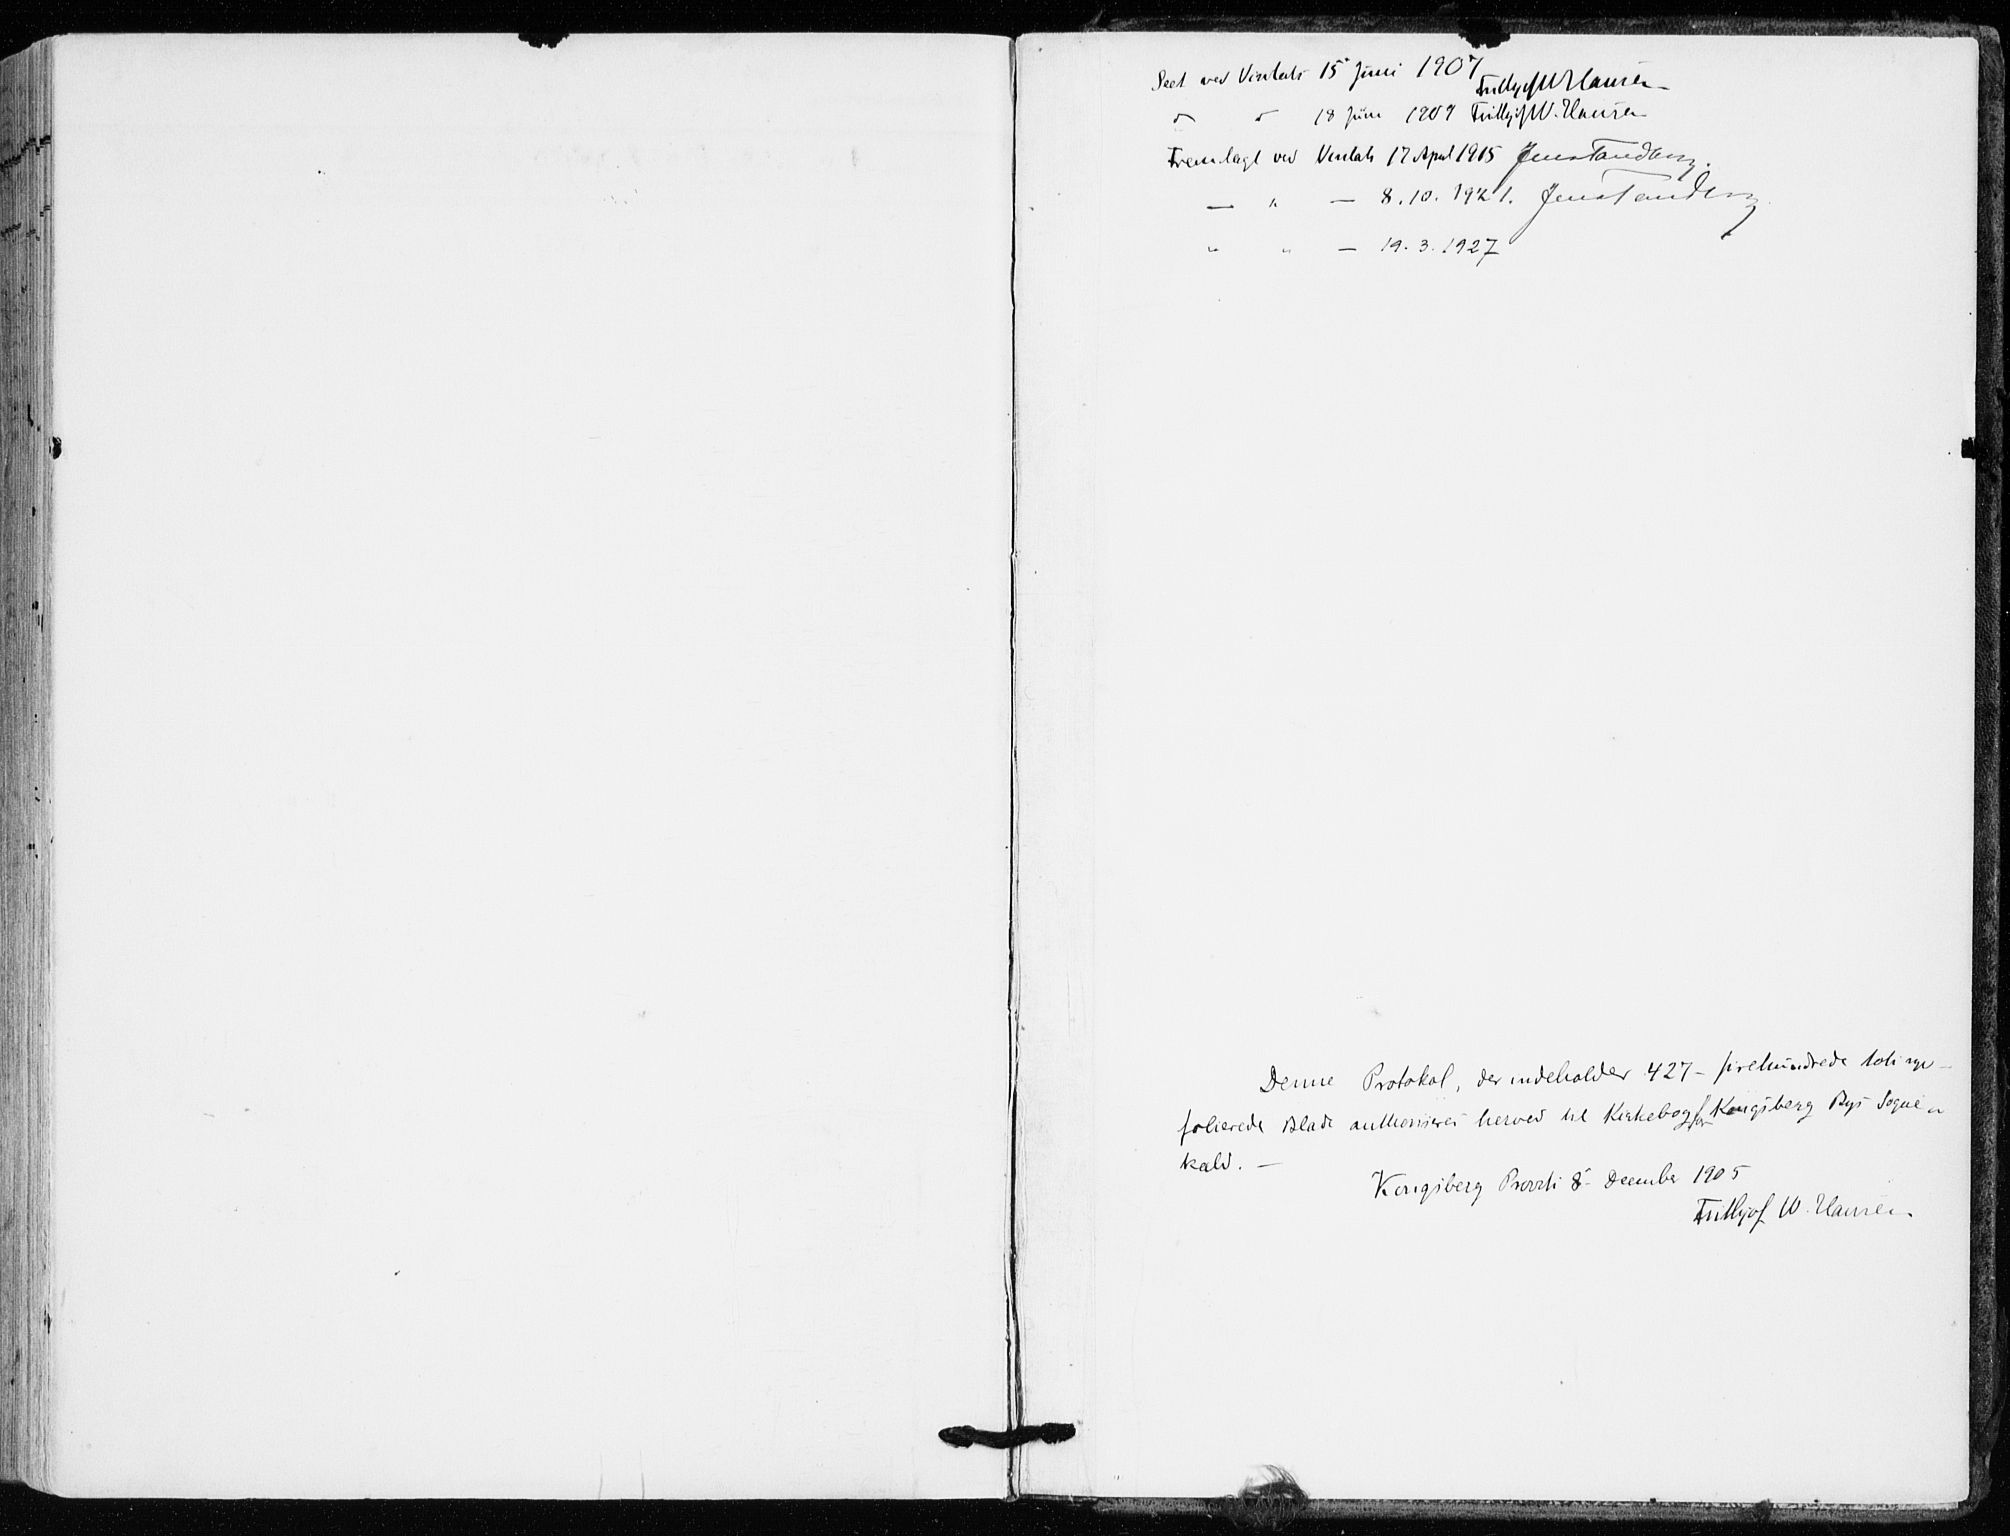 Seet ved Visitats 15 Juni 1907
Frithjof W Hansen
" " 18 Juni 1909 Frithjof W. Hansen
Fremlagt ved Visitats 17 April 1915 Jens Tandberg.
— " — 8.10.1921. Jens Tandberg
" " — 19.3.1927
Denne Protokol, der indeholder 427 – firehundrede toti syv –
folierede Blade authoriseres herved til Kirkebog for Kongsberg Bys Sogne-
kald. —
Kongsberg Provsti 8 December 1905
Frithjof W. Hansen